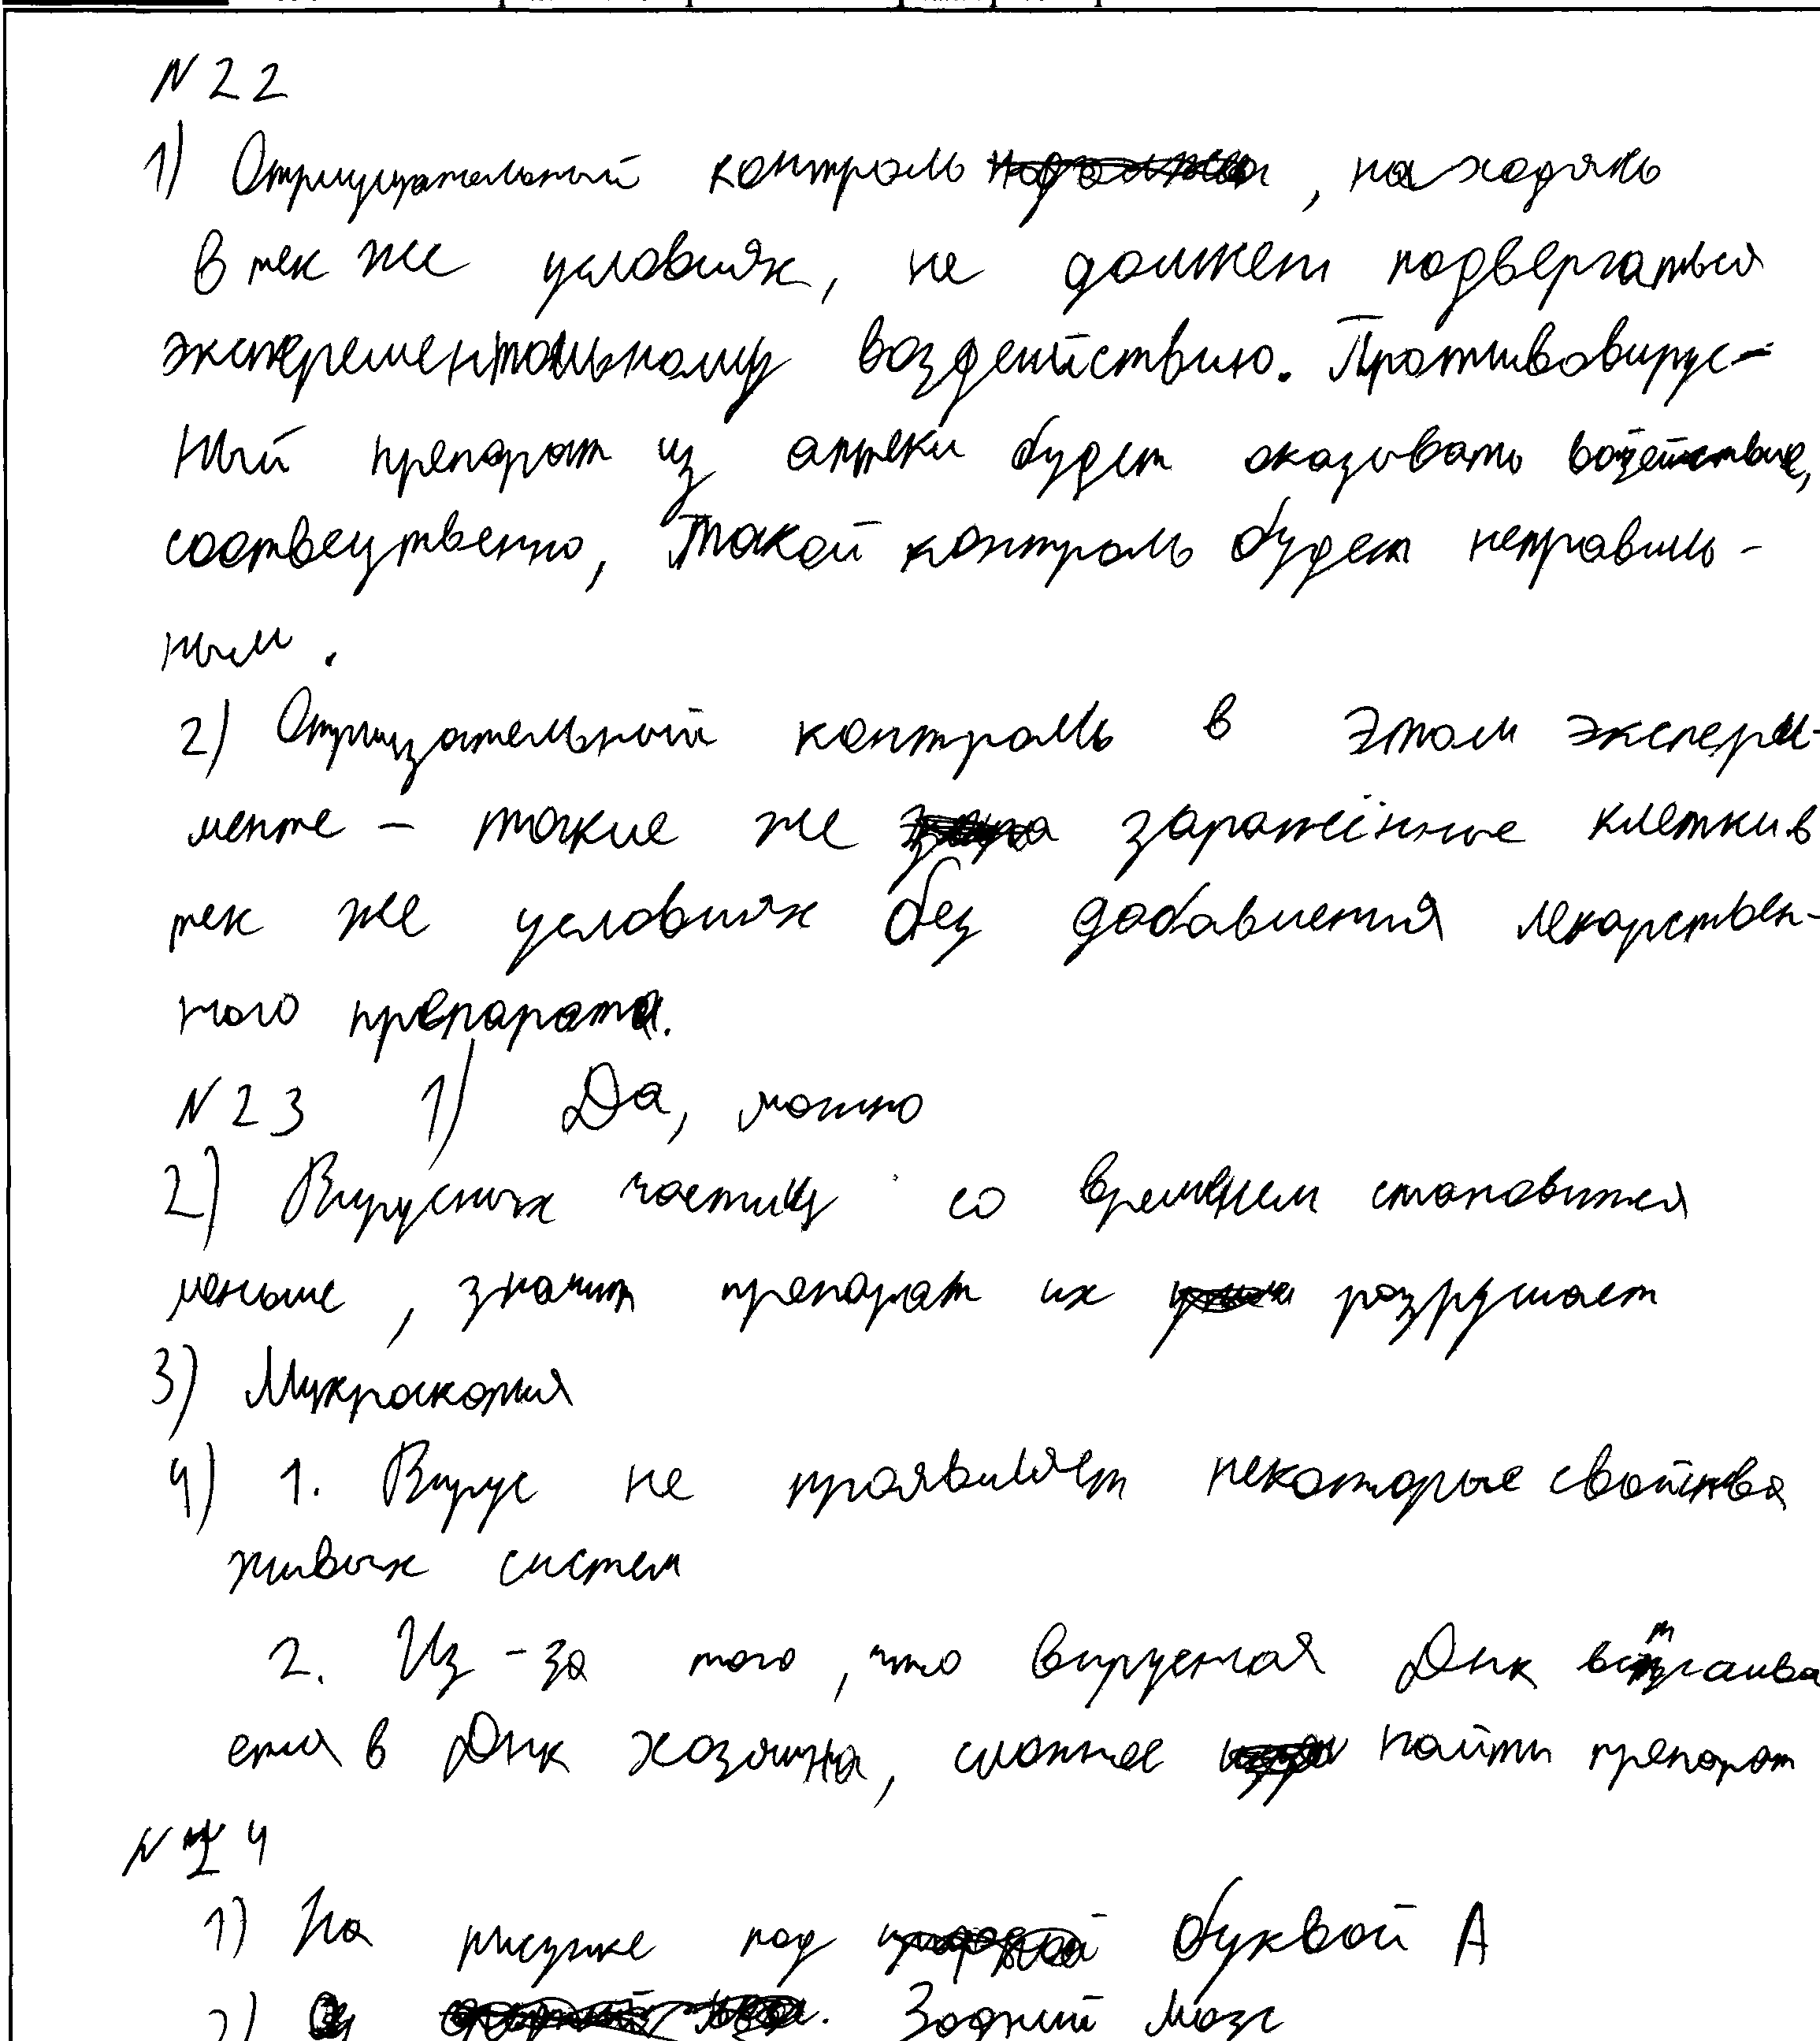 N 22
1) Отрицательный контроль, находясь
в тех же условиях, не должен подвергаться
эксперементальному воздействию. Противовирус-
ный препарат из аптеки будет оказывать
соотвецтвенно, такой контроль будет неправиль-
ным.
2) Отрицательный контроль в этом экспери-
менте – такие же заражённые клетки в
тех же условиях без добавления лекарствен-
ного препарата.
N 23 1) Да, можно
2) Вирусных частиц со временем становится
меньше, значит препарат их разрушает
3) Микроскопия
4) 1. Вирус не проявляет некоторые свойства
живых систем
2. Из-за того, что вирусная Днк встраива
ется в Днк хозяина, сложнее найти препарат
N 24
1) На рисунке под буквой А
2) Задний мозг